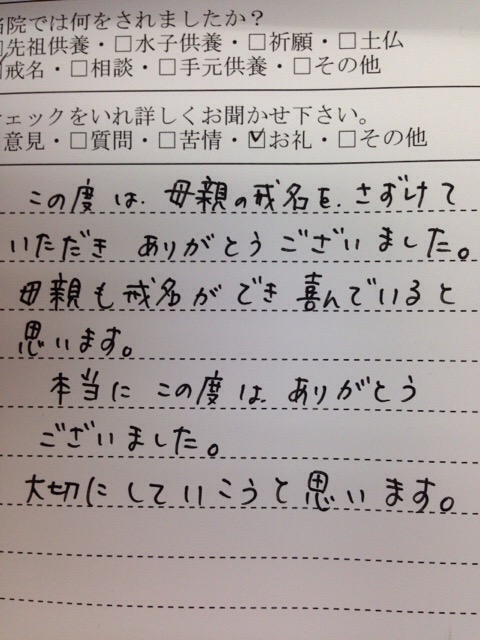 当院では何をされましたか？
□先祖供養・□水子供養・□祈願・□土仏
☑戒名・□相談・□手元供養・□その他
チェックをいれ詳しくお聞かせ下さい。
意見・□質問・□苦情・☑お礼・□その他
この度は、母親の戒名を、さずけて
いただき ありがとうございました。
母親も戒名ができ喜んでいると
思います。
本当にこの度は ありがとう
ございました。
大切にしていこうと思います。